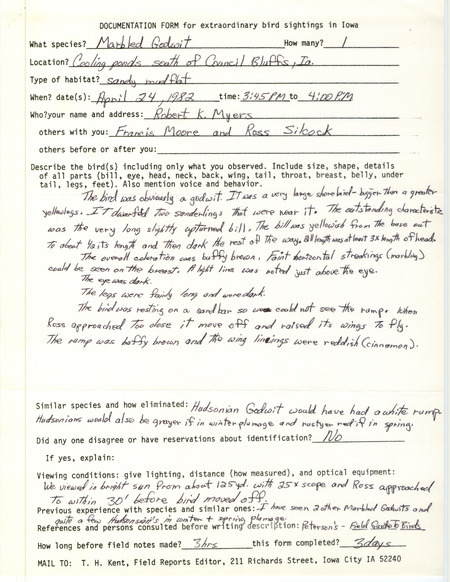 DOCUMENTATION FORM for extraordinary bird sightings in Iowa
What species? Marbled Godwit How many? 1
Location? Cooling ponds south of Council Bluffs, Ia.
Type of habitat? sandy mudflat
When? date(s): April 24, 1982 time: 3:45 PM to 4:00 PM
Who? your name and address: Robert K. Myers
others with you: Francis Moore and Ross Silcock
others before or after you:
Describe the bird(s) including only what you observed. Include size, shape, details
of all parts (bill, eye, head, neck, back, wing, tail, throat, breast, belly, under
tail, legs, feet). Also mention voice and behavior.
The bird was obviously a godwit. It was a very large shorebird - bigger than a greater
yellowlegs. It dwarfed two sanderlings that were near it. The outstanding characteristic
was the very long slightly upturned bill. The bill was yellowish from the base out
to about ½ its length and then dark the rest of the way. Bill length was at least 3X length of head.
The overall coloration was buffy brown. Faint horizontal streakings (marbling)
could be seen on the breast. A light line was noted just above the eye.
The eye was dark.
The legs were fairly long and were dark.
The bird was resting on a sandbar so we could not see the rump. When
Ross approached too close it move off and raised its wings to fly.
The rump was buffy brown and the wing linings were reddish (cinnamon).
Similar species and how eliminated: Hudsonian Godwit would have had a white rump
Hudsonians would also be grayer if in winter plumage and rustyer red if in spring.
Did any one disagree or have reservations about identification? No
If yes, explain:
Viewing conditions: give lighting, distance (how measured), and optical equipment:
We viewed in bright sun from about 125 yd. with 25x scope and Ross approached
to within 30' before bird moved off.
Previous experience with species and similar ones: I have seen 2 other Marbled Godwits and
quite a few Hudsonian's in winter + spring plumage
References and persons consulted before writing description: Peterson's - Field Guide to Birds
How long before field notes made? 3 hrs this form completed? 3 days
MAIL TO: T. H. Kent, Field Reports Editor, 211 Richards Street, Iowa City IA 52240